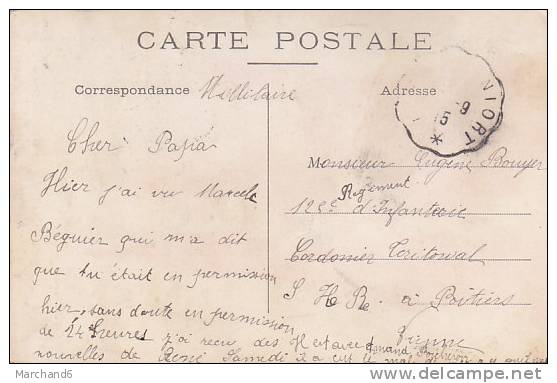 CARTE POSTALE
Correspondance Millitaire
Adresse
NIORT
5
6
Cher Papa
Hier j'ai vu Marcel
Béguier qui m'a dit
que tu était en permission
hier, sans doute en permission
de 24 heures j'ai reçu des
nouvelles de René Samedi il a eut le mal
Monsieur Eugène Bouyer
125e Regiment d'Infanterie
Cordonier Teritorial
S H R à Poitiers
Vienne
Marchand6
© delcampe.net